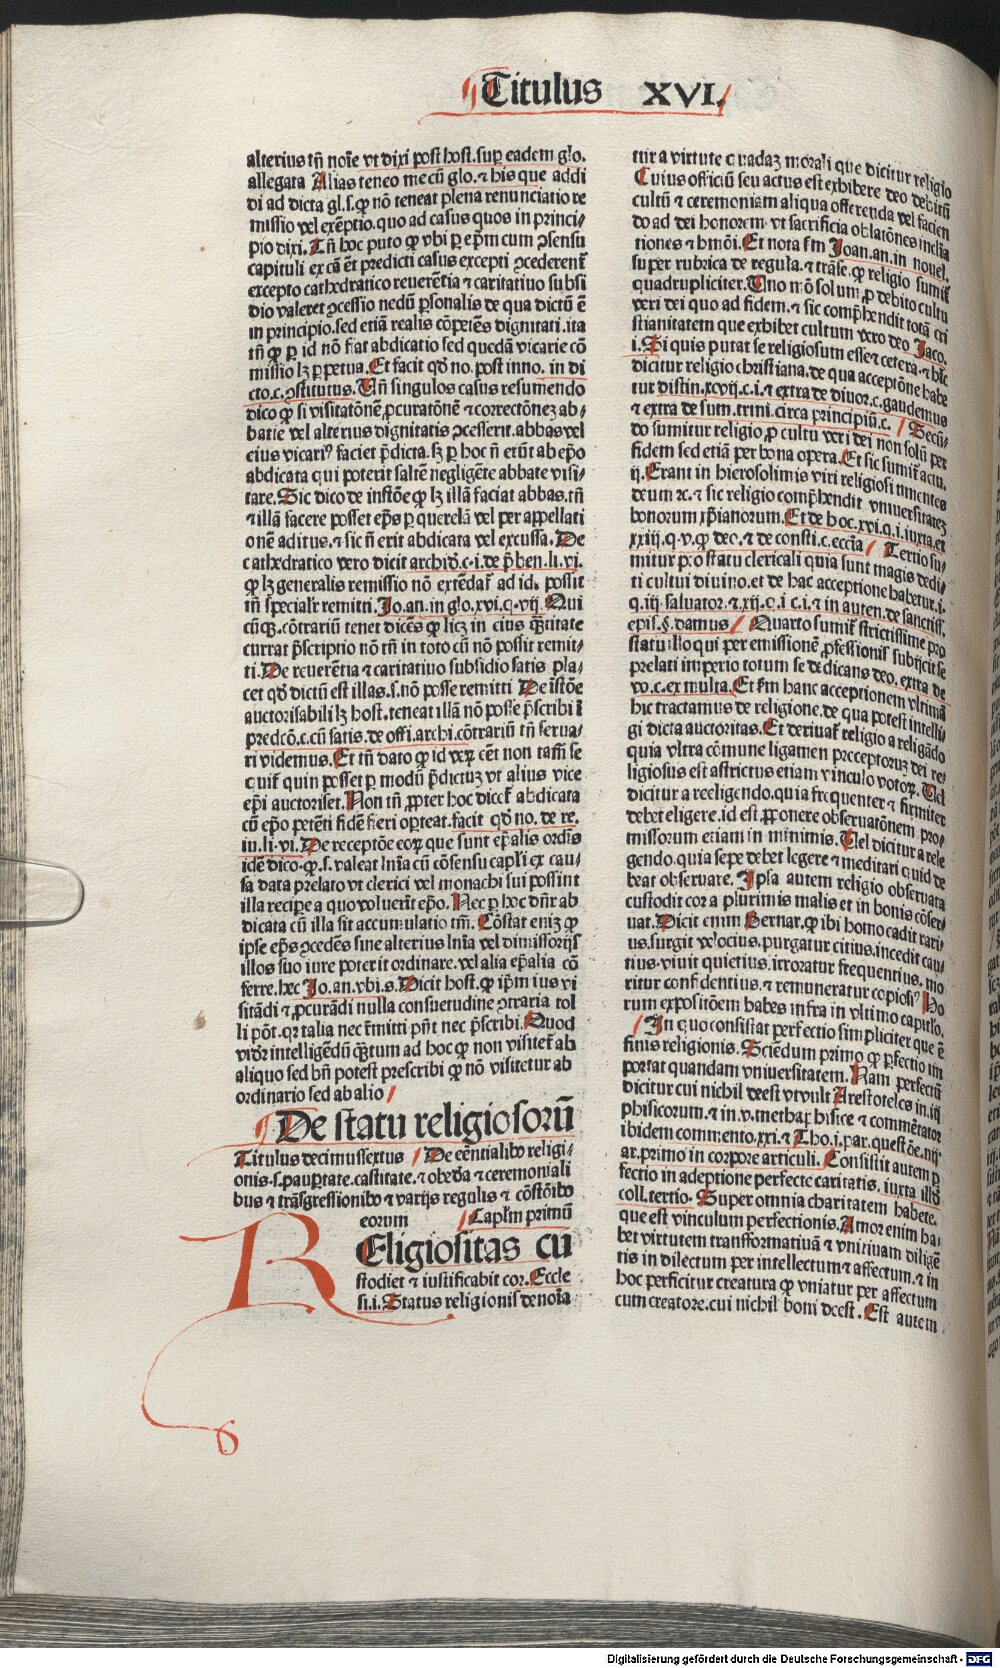 Titulus XVI.
alterius tñ noīe vt dixi post host. sup eadem glo.
allegata Alias teneo me cū glo. ⁊ his que addi
di ad dicta gl. s. ꝙ nō teneat plena renunciatio re
missio vel exēptio. quo ad casus quos in princi⸗
pio dixi. Tñ hoc puto ꝙ vbi ꝑ ep̄m cum ↄsensu
capituli ex cā ēt predicti casus excepti ↄcederent̄
excepto cathedratico reuerētia ⁊ caritatiuo subsi
dio valeret ↄcessio nedū ꝑsonalis de qua dictū ē
in principio. sed etiā realis cōpetēs dignitati. ita
tñ ꝙ ꝑ id nō fiat abdicatio sed quedā vicarie cō
missio lꝫ ꝑpetua. Et facit qd̄ no. post inno. in di
cto. c. ↄstitutus. Uñ singulos casus resumendo
dico ꝙ si visitatōnē ꝓcuratōnē ⁊ correctōneꝫ ab⸗
batie vel alterius dignitatis ↄcesserit. abbas vel
eius vicariꝰ faciet p̄dicta. sꝫ ꝑ hoc ñ erūt ab ep̄o
abdicata qui poterit saltē negligēte abbate visi⸗
tare. Sic dico de instōe ꝙ lꝫ illā faciat abbas. tñ
⁊ illā facere posset ep̄s ꝑ querelā vel per appellati
onē aditus. ⁊ sic ñ erit abdicata vel excussa. De
cathedratico vero dicit archid̄. c. i. de p̄ben. li. vi.
ꝙ lꝫ generalis remissio nō extēdat̄ ad id. possit
tñ specialr̄ remitti. Jo. an. in glo. xvi. q. vij. Qui
cūqꝫ. cōtrariū tenet dicēs ꝙ licꝫ in eius q̄ntitate
currat p̄scriptio nō tñ in toto cū nō possit remit⸗
ti. De reuerētia ⁊ caritatiuo subsidio satis pla⸗
cet qd̄ dictū est illas. s. nō posse remitti De istōe
auctorisabili lꝫ host. teneat illā nō posse p̄scribi ī
predcō. c. cū satis. de offi. archi. cōtrariū tñ serua⸗
ri videmus. Et tñ dato ꝙ id veꝝ cēt non tam̄ se
quit̄ quin posset ꝑ modū p̄dictuꝫ vt alius vice
ep̄i auctoriset. Non tñ ꝓpter hoc dicet̄ abdicata
cū ep̄o petēti fidē fieri oꝑteat. facit qd̄ no. de re.
iu. li. vi. De receptōe eoꝝ que sunt ep̄alis ordīs
idē dico. ꝙ. s. valeat lnīa cū cōsensu capl̄i ex cau⸗
sa data prelato vt clerici vel monachi sui possint
illa recipe a quo voluerit ep̄o. Nec ꝑ hoc dn̄r ab
dicata cū illa sit accumulatio tm̄. Cōstat eniꝫ ꝙ
ipse ep̄s ↄcedēs sine alterius lnīa vel dimissorijs
illos suo iure poterit ordinare. vel alia ep̄alia cō
ferre. hec Jo. an. vbi. s. Dicit host. ꝙ ip̄m ius vi
sitādi ⁊ ꝓcurādi nulla consuetudine ↄtraria tol
li pōt. qꝛ talia nec r̄mitti pn̄t nec p̄scribi. Quod
vid̄r intelligēdū q̄ntum ad hoc ꝙ non visitet̄ ab
aliquo sed bn̄ potest prescribi ꝙ nō visitetur ab
ordinario sed ab alio
De statu religiosorū
Titulus decimussextus De eēntialibꝰ religi⸗
onis. s. pauꝑtate. castitate. ⁊ obedīa ⁊ ceremoniali
bus ⁊ trāsgressionibꝰ ⁊ varijs regulis ⁊ cōstōibꝰ
eorum Capl̄m primū
REligiositas cu
stodiet ⁊ iustificabit cor. Eccle
si. i. Status religionis denoīa
tur a virtute quadaꝫ morali que dicitur religio
Cuius officiū seu actus est exhibere deo debitū
cultū ⁊ ceremoniam aliqua offerenda vel facien
do ad dei honorem. vt sacrificia oblatōnes inclīa
tiones ⁊ hm̄ōi. Et nota s̄m Joan. an. in nouel.
super rubrica de regula. ⁊ trāse. ꝙ religio sumit̄
quadrupliciter. Uno mō solum ꝓ debito cultu
veri dei quo ad fidem. ⁊ sic comp̄hendit totā cri
stianitatem que exhibet cultum vero deo Jaco.
i. Si quis putat se religiosum esse ⁊ cetera. ⁊ hec
dicitur religio christiana. de qua acceptōne habe
tur distin. xcvij. c. i. ⁊ extra de diuor. c. gaudemus
⁊ extra de sum. trini. circa principiū. c. Secū⸗
do sumitur religio ꝓ cultu veri dei non solū per
fidem sed etiā per bona opera. Et sic sumit̄ actu.
ij. Erant in hierosolimis viri religiosi timentes
deum ⁊c. ⁊ sic religio comp̄hendit vniuersitateꝫ
bonorum xp̄ianorum. Et de hoc. xvi. q. i. iuxta. et
xxiij. q. v. ꝙ deo. ⁊ de consti. c. eccīa Tertio su⸗
mitur ꝓ statu clericali quia sunt magis dedi⸗
ti cultui diuino. et de hac acceptione habetur. i.
q. iij. saluator. ⁊ xij. q. i c. i. ⁊ in auten. de sanctiss.
epis. §. damus Quarto sumit̄ strictissime pro
statu illo qui per emissionē ꝓfessionis subijcit se
prelati imperio totum se dedicans deo. extra de
vo. c. ex multa. Et s̄m hanc acceptionem vltimā
hic tractamus de religione. de qua potest intelli
gi dicta auctoritas. Et deriuat̄ religio a religādo
quia vltra cōmune ligamen preceptoruꝫ dei re⸗
ligiosus est astrictus etiam vinculo votoꝝ. Uel
dicitur a reeligendo. quia frequenter ⁊ firmiter
debet eligere. id est. ꝓponere obseruatōnem pro⸗
missorum etiam in minimis. Uel dicitur a rele
gendo. quia sepe debet legere ⁊ meditari quid de
beat obseruare. Ipsa autem religio obseruata
custodit cor a plurimis malis et in bonis cōser⸗
uat. Dicit enim Bernar. ꝙ ibi homo cadit rari⸗
us. surgit velocius. purgatur citius. incedit cau⸗
tius. viuit quietius. irroratur frequentius. mo
ritur confidentius. ⁊ remuneratur copiosiꝰ Ho
rum expositōem habes infra in vltimo capitlo.
In quo consistat perfectio simpliciter que ē
finis religionis. Sciēdum primo ꝙ ꝑfectio im
portat quandam vniuersitatem. Nam perfectū
dicitur cui nichil deest vt vult Arestoteles in. iij
phisicorum. ⁊ in. v. methaphisice ⁊ commētator
ibidem commento. xxi. ⁊ Tho. i. par. questōe. iiij
ar. primo in corpore articuli. Consistit autem ꝑ
fectio in adeptione perfecte caritatis. iuxta illd̄
coll. tertio. Super omnia charitatem habete.
que est vinculum perfectionis. Amor enim ha⸗
bet virtutem transformatiuā ⁊ vnitiuam diligē
tis in dilectum per intellectum ⁊ affectum. ⁊ in
hoc perficitur creatura ꝙ vniatur per affectum
cum creatore. cui nichil boni deest. Est autem
Digitalisierung gefördert durch die Deutsche Forschungsgemeinschaft - DFG